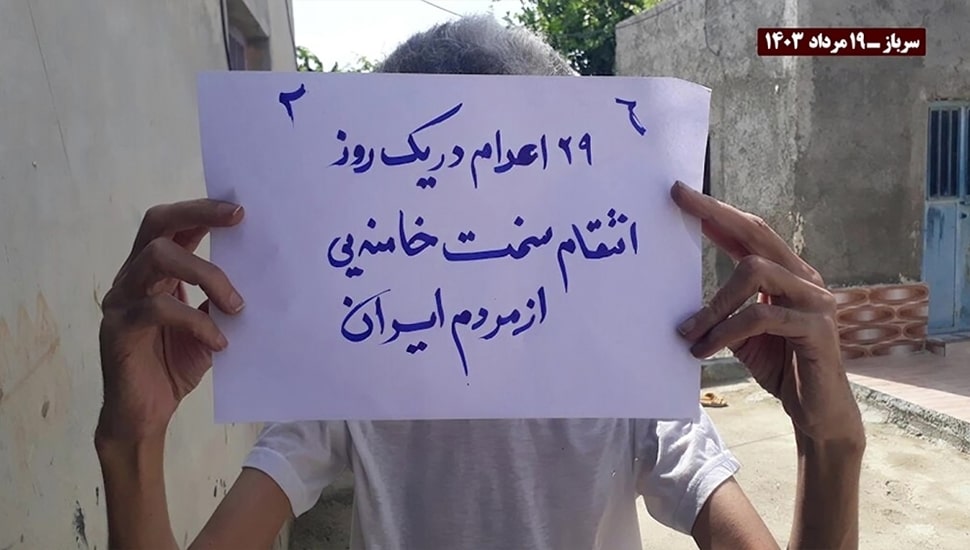 سرباز ــ ۱۹ مرداد ۱۴۰۳
۶ ۲
۲۹ اعدام در یک روز
انتقام سخت خامنه‌یی
از مردم ایران